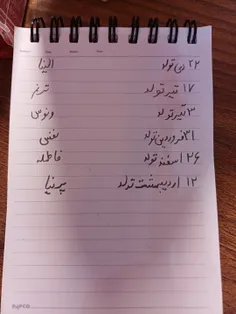 ۲۲ دی تولد الینا
۱۷ تیر تولد ترنم
۳ تیر تولد ونوس
۳۱ فروردین تولد نفس
۲۶ اسفند تولد فاطمه
۱۲ اردیبهشت تولد پرنیا